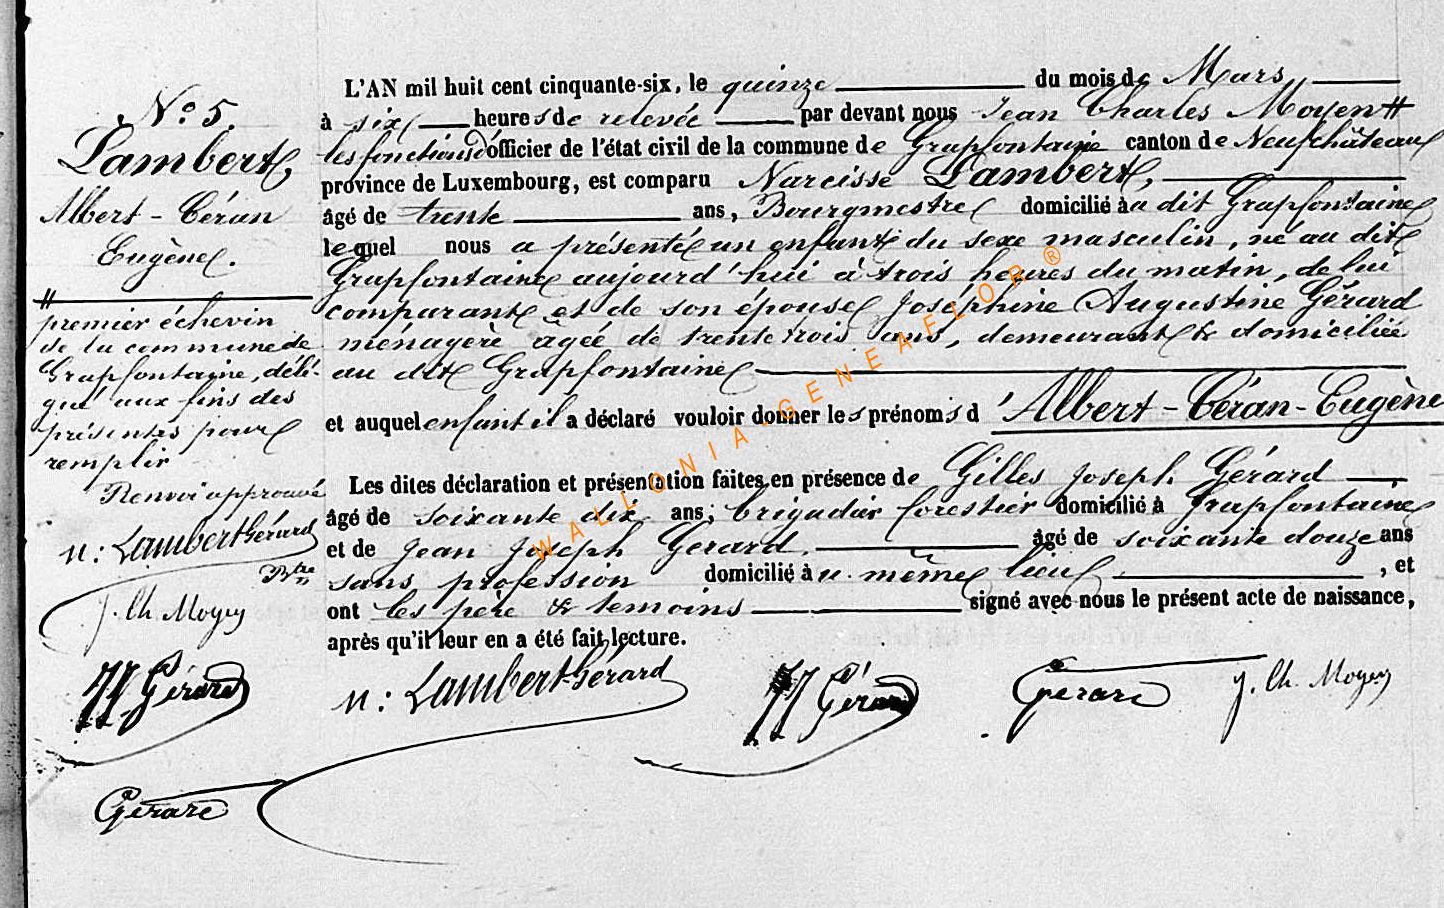 N° 5.
Lambert,
Albert - Céran
Eugène.
premier échevin
de la commune de
Grapfontaine, délé-
gué aux fins des
présentes pour
remplir
Renvoi approuvé
n: Lambert Gérard
Btre
J. Ch. Moyen
JJ Gérard
Gerard
L'AN mil huit cent cinquante-six, le quinze du mois de Mars,
à six heures de relevée par devant nous Jean Charles Moyen #
les fonctions d'officier de l'état civil de la commune de Grapfontaine canton de Neufchâteau
province de Luxembourg, est comparu Narcisse Lambert,
âgé de trente ans, Bourgmestre domicilié au dit Grapfontaine
lequel nous a présenté un enfant du sexe masculin, né au dit
Grapfontaine aujourd'hui à trois heures du matin, de lui
comparant et de son épouse Joséphine Augustine Gérard
ménagère âgée de trente trois ans, demeurant & domiciliée
au dit Grapfontaine
et auquel enfant il a déclaré vouloir donner les prénoms d'Albert - Céran - Eugène
Les dites déclaration et présentation faites en présence de Gilles Joseph Gérard
âgé de soixante dix ans, brigadier forestier domicilié à Grapfontaine
et de Jean Joseph Gerard, âgé de soixante douze ans
sans profession domicilié au même lieu, et
ont les père & temoins signé avec nous le présent acte de naissance,
après qu'il leur en a été fait lecture.
n: Lambert-Gérard JJ Gérard Gerard J. Ch. Moyen
WALLONIA-GENEAFLOR ®